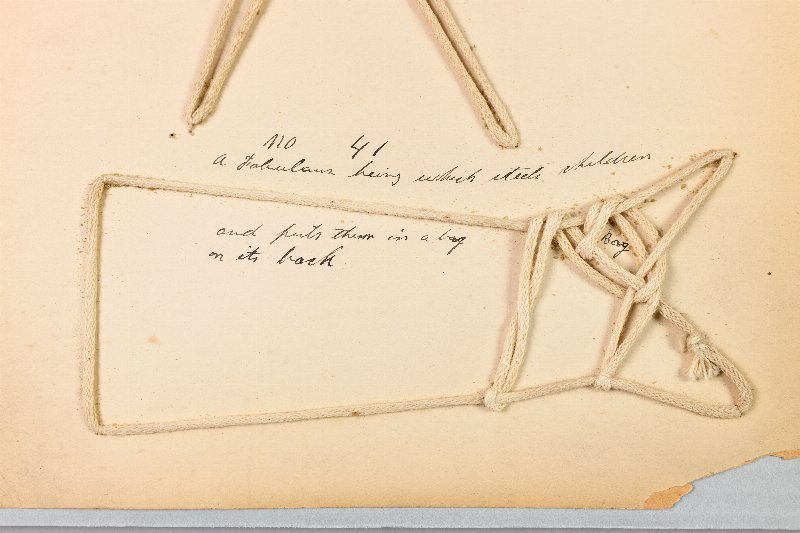 No 41
A Fabulous being which steels children
and puts them in a bag
on its back
Bag